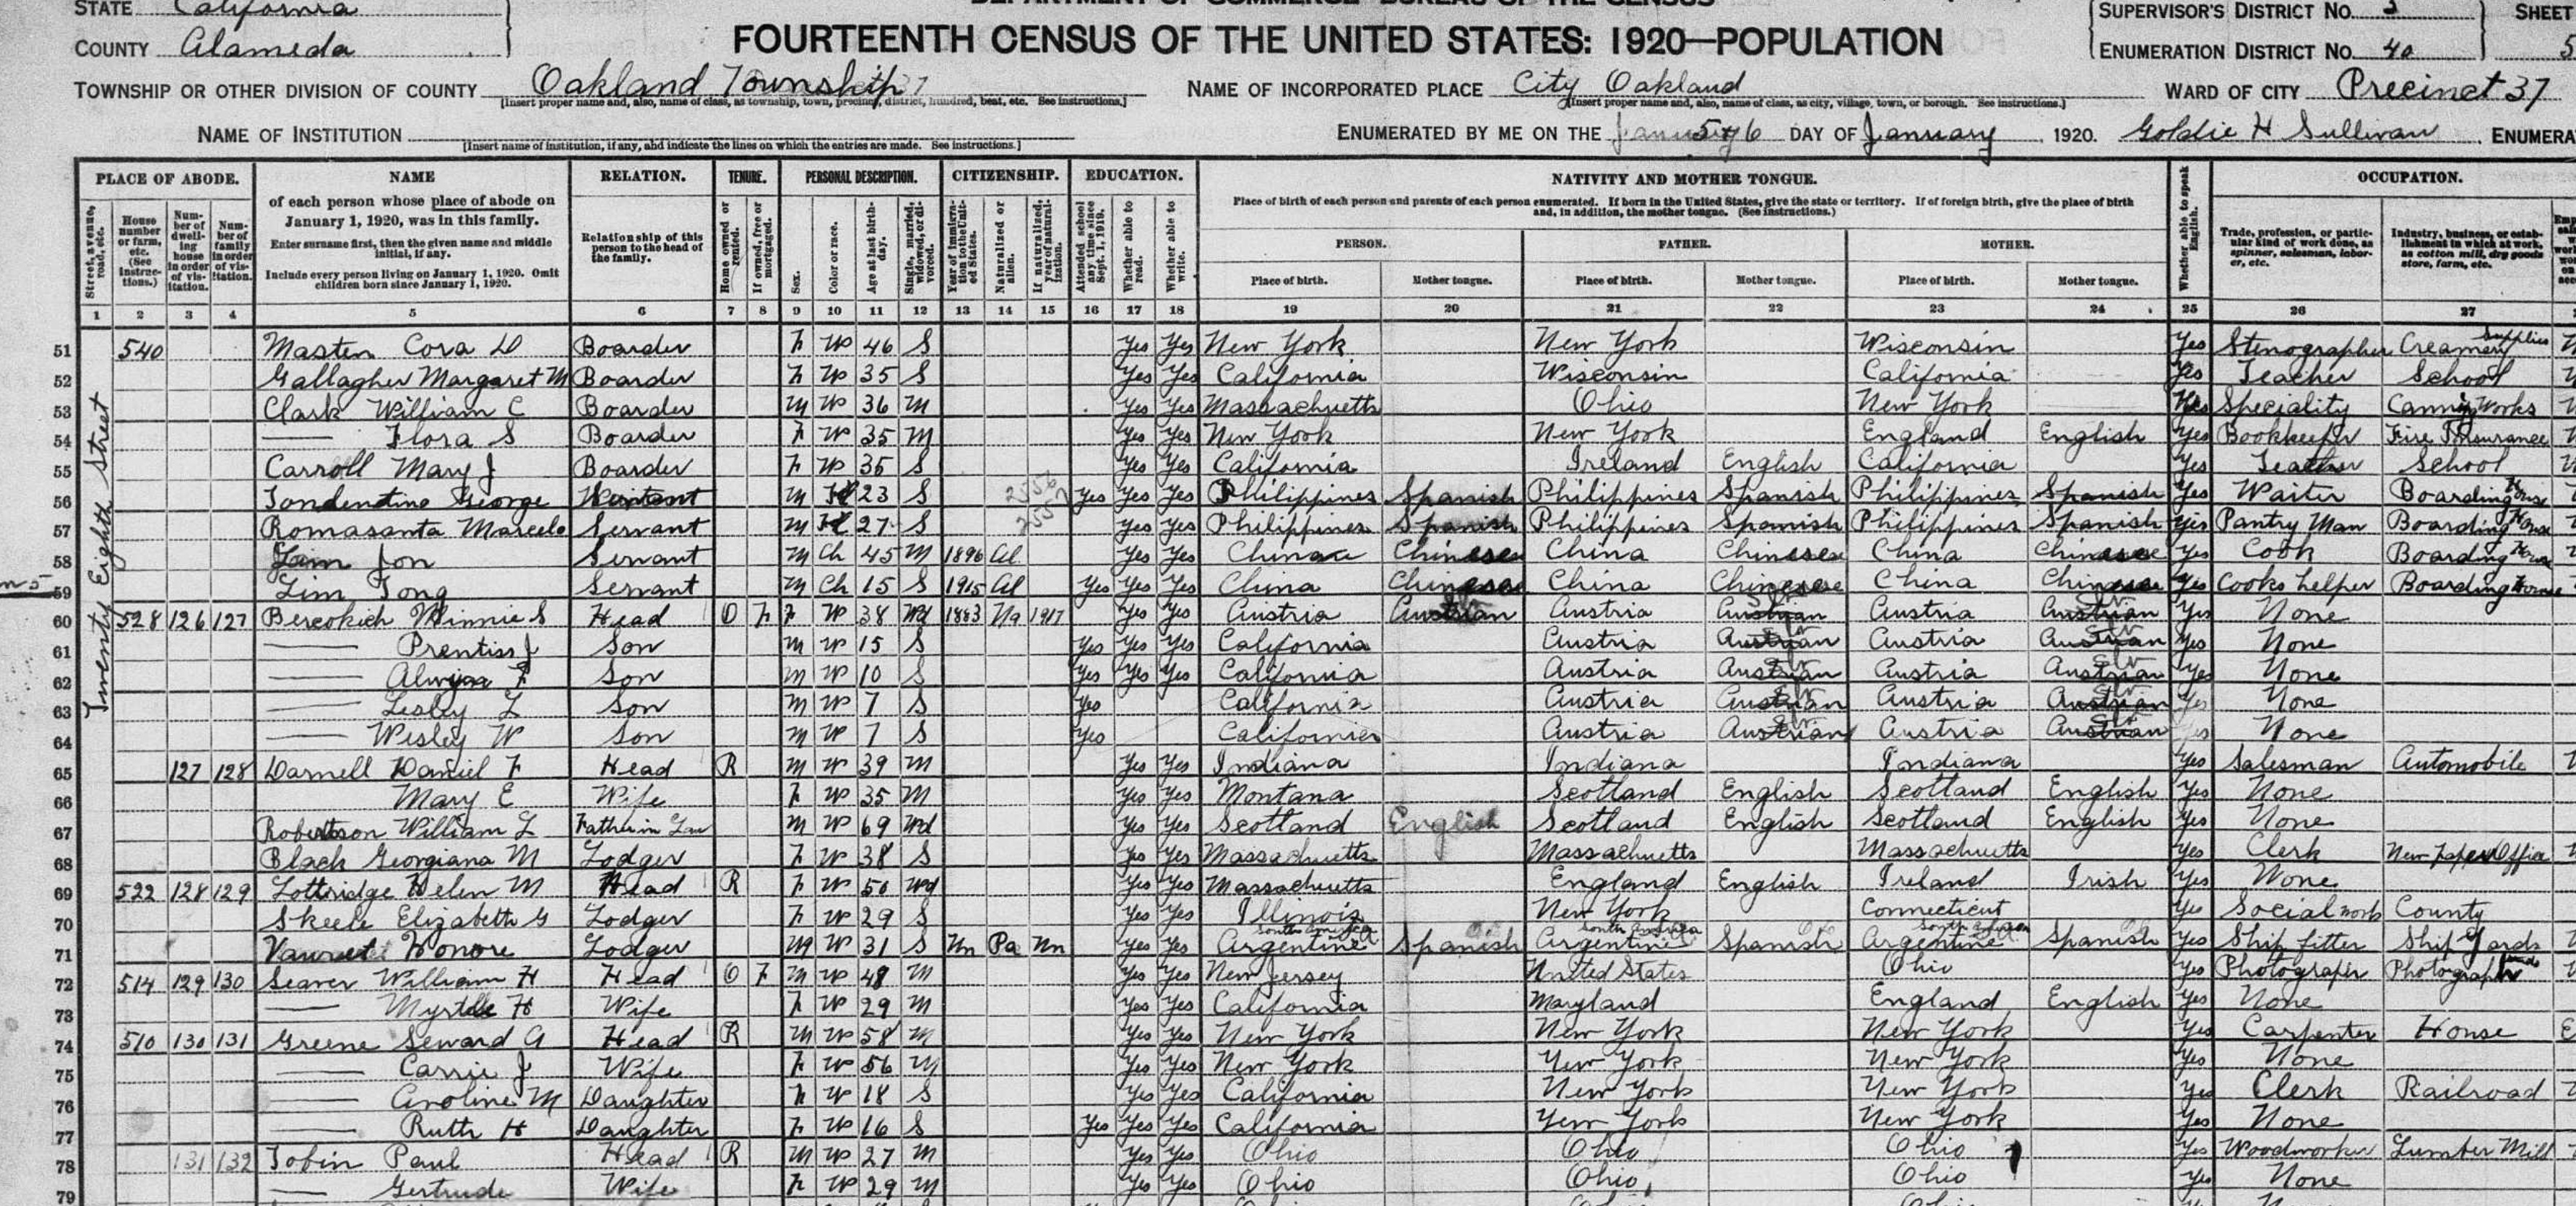 STATE California
COUNTY Alameda
DEPARTMENT OF COMMERCE-BUREAU OF THE CENSUS
FOURTEENTH CENSUS OF THE UNITED STATES: 1920—POPULATION
SUPERVISOR'S DISTRICT No. 3 SHEET
ENUMERATION DISTRICT No. 40 5
TOWNSHIP OR OTHER DIVISION OF COUNTY Oakland Township 37
[Insert proper name and, also, name of class, as township, town, precinct, district, hundred, beat, etc. See instructions.]
NAME OF INCORPORATED PLACE City Oakland
[Insert proper name and, also, name of class, as city, village, town, or borough. See instructions.]
WARD OF CITY Precinct 37
NAME OF INSTITUTION
[Insert name of institution, if any, and indicate the lines on which the entries are made. See instructions.]
ENUMERATED BY ME ON THE 5 & 6 DAY OF January, 1920. Goldie H Sullivan, ENUMERA
PLACE OF ABODE. NAME RELATION. TENURE. PERSONAL DESCRIPTION. CITIZENSHIP. EDUCATION. NATIVITY AND MOTHER TONGUE. OCCUPATION.
Street, avenue, road, etc.
House number or farm, etc. (See instructions.)
Number of dwelling house in order of visitation.
Number of family in order of visitation.
of each person whose place of abode on January 1, 1920, was in this family.
Enter surname first, then the given name and middle initial, if any.
Include every person living on January 1, 1920. Omit children born since January 1, 1920.
Relationship of this person to the head of the family.
Home owned or rented.
If owned, free or mortgaged.
Sex.
Color or race.
Age at last birthday.
Single, married, widowed, or divorced.
Year of immigration to the United States.
Naturalized or alien.
If naturalized, year of naturalization.
Attended school any time since Sept. 1, 1919.
Whether able to read.
Whether able to write.
Place of birth of each person and parents of each person enumerated. If born in the United States, give the state or territory. If of foreign birth, give the place of birth and, in addition, the mother tongue. (See instructions.)
PERSON. FATHER. MOTHER.
Place of birth. Mother tongue. Place of birth. Mother tongue. Place of birth. Mother tongue.
Whether able to speak English.
Trade, profession, or particular kind of work done, as spinner, salesman, laborer, etc.
Industry, business, or establishment in which at work, as cotton mill, dry goods store, farm, etc.
1 2 3 4 5 6 7 8 9 10 11 12 13 14 15 16 17 18 19 20 21 22 23 24 25 26 27
Twenty Eighth Street
51 540 Masten Cora D Boarder F W 46 S Yes Yes New York New York Wisconsin Yes Stenographer Creamery Supplies
52 Gallagher Margaret M Boarder F W 35 S Yes Yes California Wisconsin California Yes Teacher School
53 Clark William C Boarder M W 36 M Yes Yes Massachuetts Ohio New York Yes Speciality Works
54 — Flora S Boarder F W 35 M Yes Yes New York New York England English Yes Bookkeeper Fire Insurance
55 Carroll Mary J Boarder F W 35 S Yes Yes California Ireland English California Yes Teacher School
56 George M 23 S Yes Yes Yes Philippines Spanish Philippines Spanish Philippines Spanish Yes Waiter Boarding House
57 Romasanta Marcelo Servant M 27 S Yes Yes Philippines Spanish Philippines Spanish Philippines Spanish Yes Pantry Man Boarding House
58 Jon Servant M Ch 45 M 1896 Al Yes Yes China Chinese China Chinese China Chinese Yes Cook Boarding House
59 Lim Tong Servant M Ch 15 S 1915 Al Yes Yes Yes China Chinese China Chinese China Chinese Yes Cooks helper Boarding House
60 528 126 127 Bercokich Minnie S Head O F F W 38 Wd 1883 Na 1917 Yes Yes Austria Austrian Austria Austrian Austria Austrian Yes None
61 — Prentiss J Son M W 15 S Yes Yes Yes California Austria Austrian Austria Austrian Yes None
62 — F Son M W 10 S Yes Yes Yes California Austria Austrian Austria Austrian Yes None
63 — Lesley L Son M W 7 S Yes California Austria Austrian Austria Austrian Yes None
64 — Wisley W Son M W 7 S Yes California Austria Austrian Austria Austrian Yes None
65 127 128 Darnell Daniel F Head R M W 39 M Yes Yes Indiana Indiana Indiana Yes Salesman Automobile
66 Mary E Wife F W 35 M Yes Yes Montana Scotland English Scotland English Yes None
67 Robertson William L Father in Law M W 69 Wd Yes Yes Scotland English Scotland English Scotland English Yes None
68 Black Georgiana M Lodger F W 38 S Yes Yes Massachuetts Massachuetts Massachuetts Yes Clerk New Paper Office
69 522 128 129 Lottridge Helen M Head R F W 50 Wd Yes Yes Massachuetts England English Ireland Irish Yes None
70 Skeele Elizabeth G Lodger F W 29 S Yes Yes Illinois New York Connecticut Yes Social work County
71 Honore Lodger M W 31 S Un Pa Un Yes Yes Argentine South America Spanish Argentine South America Spanish Argentine South America Spanish Yes Ship fitter Ship Yards
72 514 129 130 Seaver William H Head O F M W 48 M Yes Yes New Jersey United States Ohio Yes Photograper Photograph
73 — Myrtle H Wife F W 29 M Yes Yes California Maryland England English Yes None
74 510 130 131 Greene Seward A Head R M W 58 M Yes Yes New York New York New York Yes Carpenter House
75 — Carrie J Wife F W 56 M Yes Yes New York New York New York Yes None
76 — Aroline M Daughter F W 18 S Yes Yes California New York New York Yes Clerk Railroad
77 — Ruth H Daughter F W 16 S Yes Yes Yes California New York New York Yes None
78 131 132 Tobin Paul Head R M W 27 M Yes Yes Ohio Ohio Ohio Yes Woodworker Lumber Mill
79 — Gertrude Wife F W 29 M Yes Yes Ohio Ohio Ohio Yes None